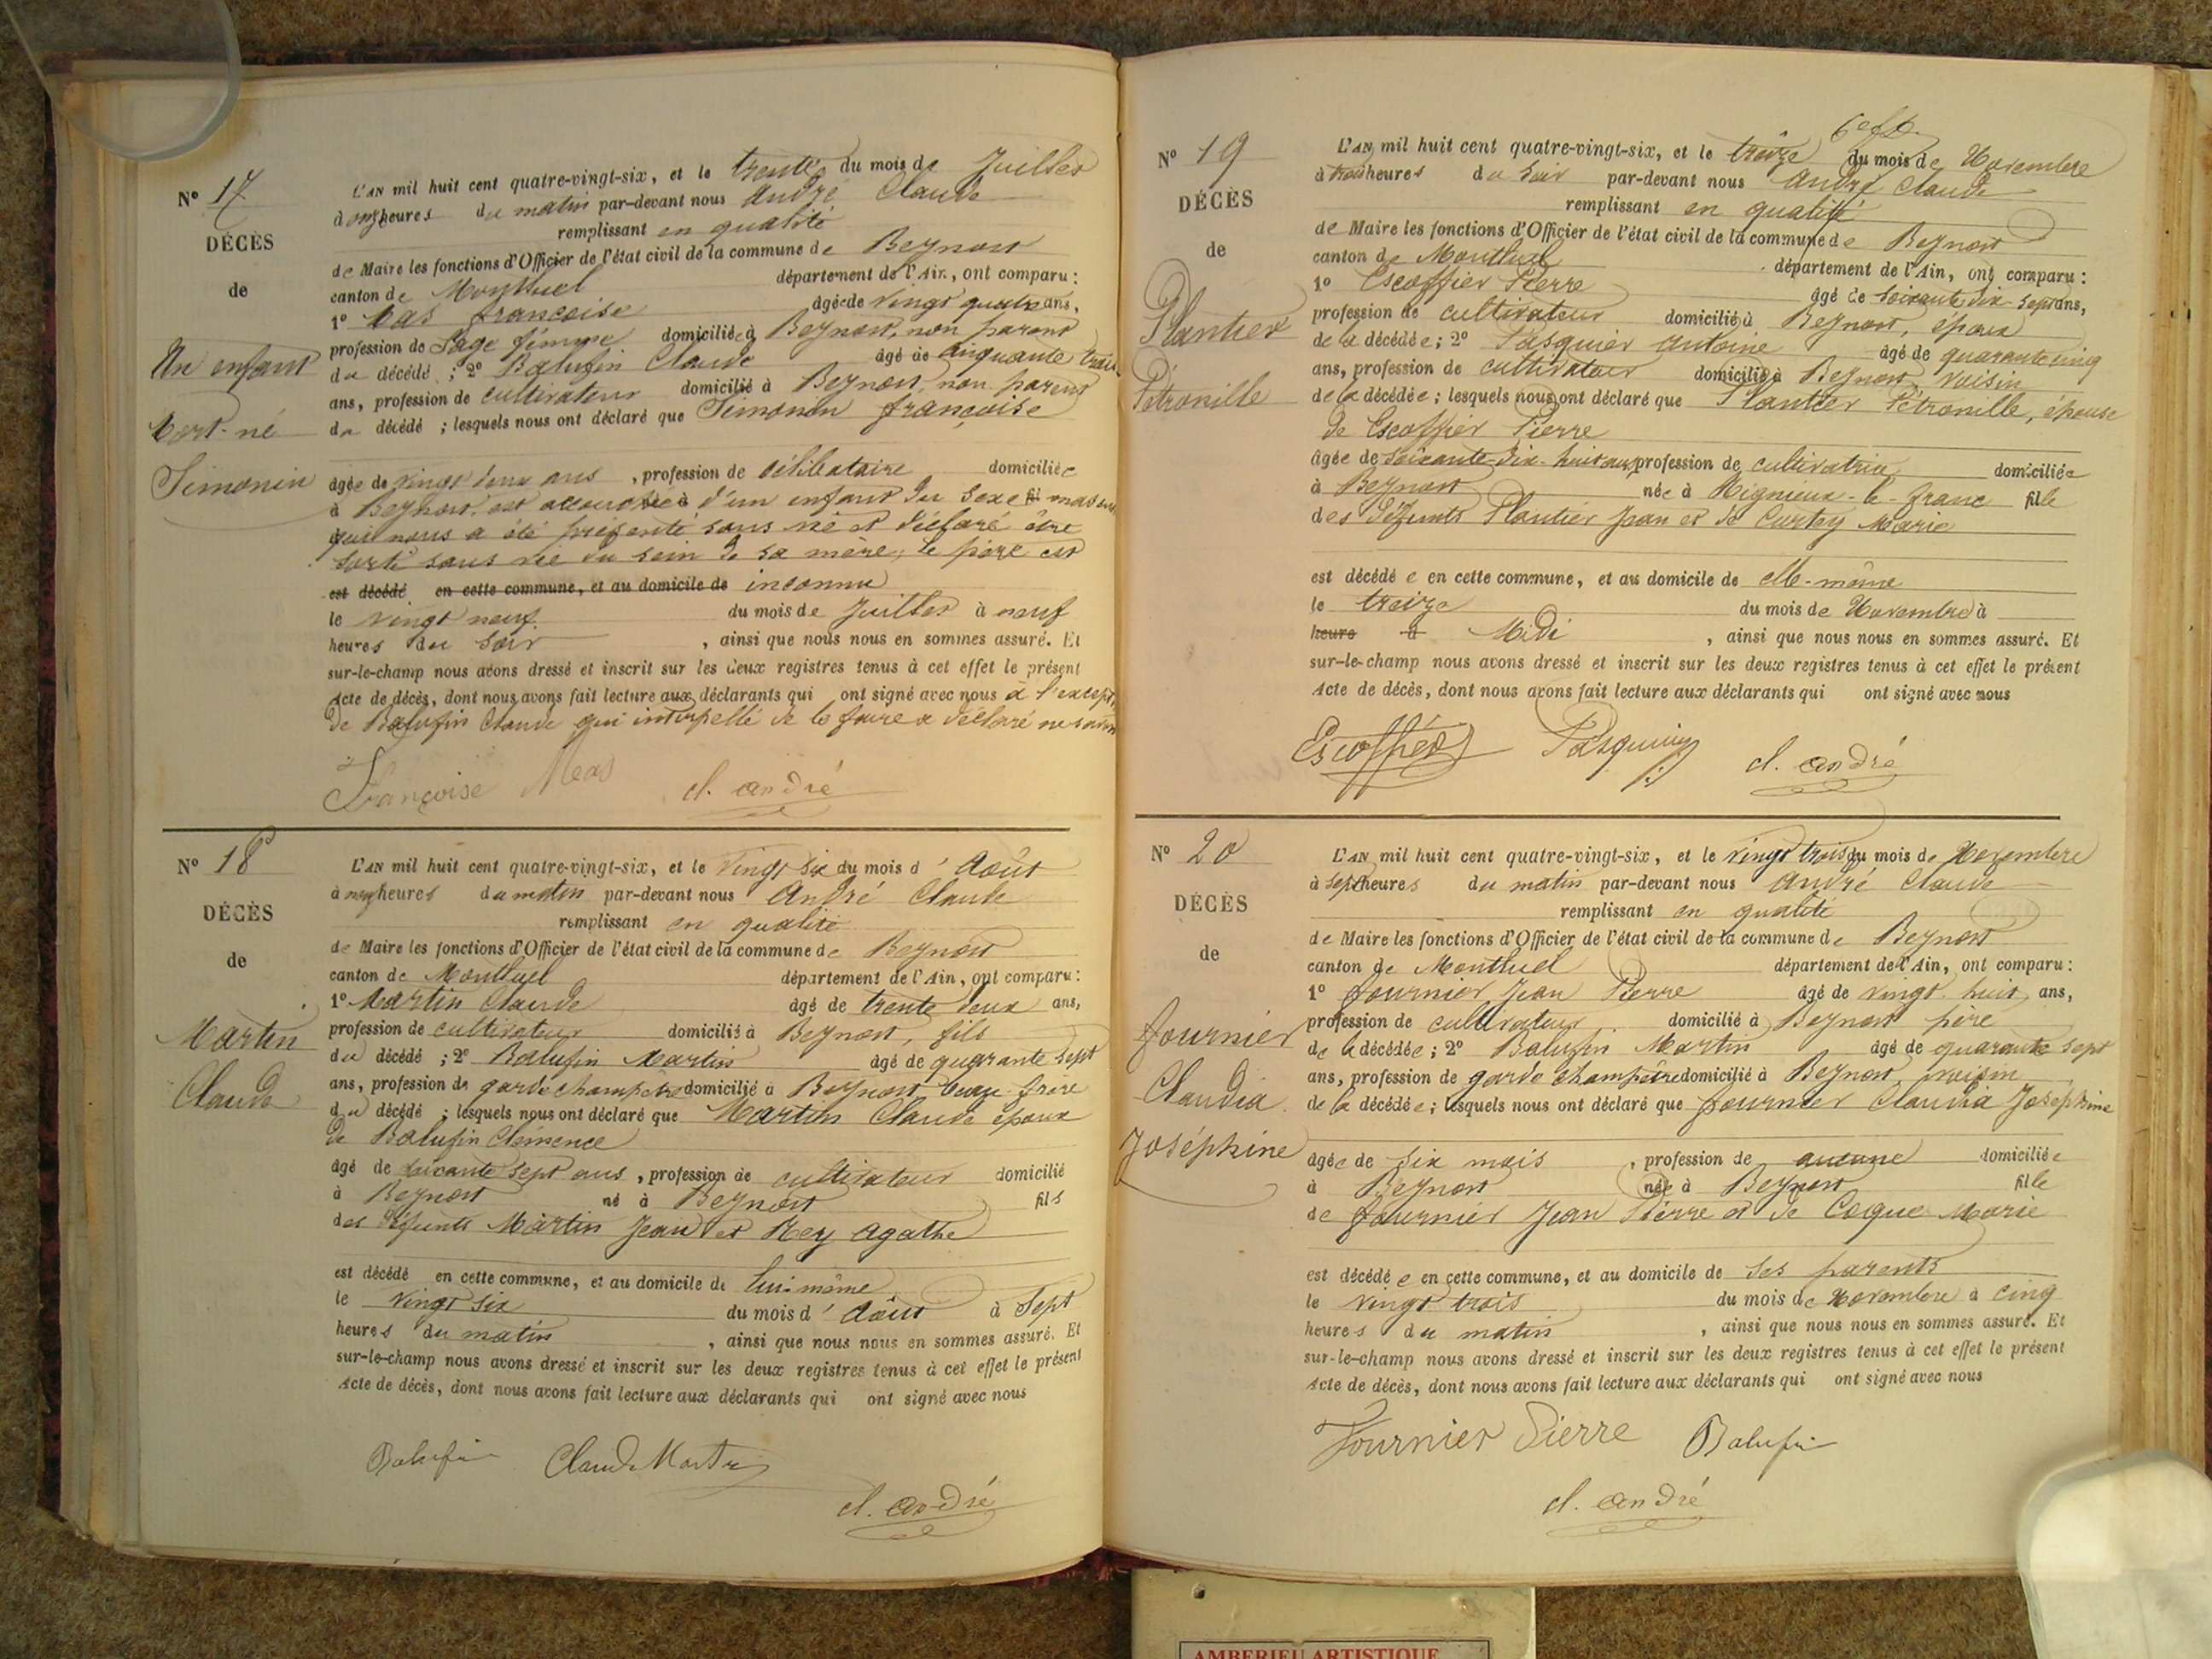 N° 17
DÉCÈS
de
Un enfant
Mort-né
Simonin
L'AN mil huit cent quatre-vingt-six, et le trente du mois de Juillet
à onze heures du matin par-devant nous André Claude
remplissant en qualité
de Maire les fonctions d'Officier de l'état civil de la commune de Beynost
canton de Montluel département de l'Ain, ont comparu :
1° Mas françoise âgée de vingt quatre ans,
profession de Sage femme domiciliée à Beynost, non parent
du décédé ; 2° Balufin Claude âgé de cinquante trois
ans, profession de cultivateur domicilié à Beynost, non parent
du décédé ; lesquels nous ont déclaré que Simonin françoise
âgée de vingt deux ans , profession de célibataire domiciliée
à Beynost, est accouchée d'un enfant du sexe masculin
qui nous a été présenté sans vie et déclaré être
sorti sans vie du sein de sa mère, le père est
est décédé en cette commune, et au domicile de inconnu
le vingt neuf du mois de Juillet à neuf
heures du soir , ainsi que nous nous en sommes assuré. Et
sur-le-champ nous avons dressé et inscrit sur les deux registres tenus à cet effet le présent
Acte de décès, dont nous avons fait lecture aux déclarants qui ont signé avec nous à l'except.
de Balufin Claude qui interpellé de le faire a déclaré ne savoir
Françoise Mas cl. andré
N° 18
DÉCÈS
de
Martin
Claude
L'AN mil huit cent quatre-vingt-six, et le vingt six du mois d'Août
à onze heures du matin par-devant nous André Claude
remplissant en qualité
de Maire les fonctions d'Officier de l'état civil de la commune de Beynost
canton de Montluel département de l'Ain, ont comparu :
1° Martin Claude âgé de trente deux ans,
profession de cultivateur domicilié à Beynost, fils
du décédé ; 2° Balufin Martin âgé de quarante sept
ans, profession de garde champêtre domicilié à Beynost beau frère
du décédé ; lesquels nous ont déclaré que Martin Claude époux
de Balufin Clémence
âgé de soixante sept ans , profession de cultivateur domicilié
à Beynost né à Beynost fils
des défunts Martin Jean et Rey Agathe
est décédé en cette commune, et au domicile de lui-même
le vingt six du mois d'Août à sept
heures du matin , ainsi que nous nous en sommes assuré. Et
sur-le-champ nous avons dressé et inscrit sur les deux registres tenus à cet effet le présent
Acte de décès, dont nous avons fait lecture aux déclarants qui ont signé avec nous
Balufin Claude Martin
cl. andré
N° 19
DÉCÈS
de
Plantier
Pétronille
L'AN mil huit cent quatre-vingt-six, et le treize du mois de Novembre
à trois heures du soir par-devant nous André Claude
remplissant en qualité
de Maire les fonctions d'Officier de l'état civil de la commune de Beynost
canton de Montluel département de l'Ain, ont comparu :
1° Escoffier Pierre âgé de soixante dix-sept ans,
profession de cultivateur domicilié à Beynost, époux
de la décédée ; 2° Pasquier Antoine âgé de quarante cinq
ans, profession de cultivateur domicilié à Beynost, voisin
de la décédée ; lesquels nous ont déclaré que Plantier Pétronille, épouse
de Escoffier Pierre
âgée de soixante-dix-huit ans, profession de cultivatrice domiciliée
à Beynost née à Mignieux-le-franc fille
des défunts Plantier Jean et de Curtey Marie
est décédée en cette commune, et au domicile de elle-même
le treize du mois de Novembre à
heure à Midi , ainsi que nous nous en sommes assuré. Et
sur-le-champ nous avons dressé et inscrit sur les deux registres tenus à cet effet le présent
Acte de décès, dont nous avons fait lecture aux déclarants qui ont signé avec nous
Escoffier Pasquier cl. andré
N° 20
DÉCÈS
de
fournier
Claudia
Joséphine
L'AN mil huit cent quatre-vingt-six, et le vingt trois du mois de Novembre
à sept heures du matin par-devant nous André Claude
remplissant en qualité
de Maire les fonctions d'Officier de l'état civil de la commune de Beynost
canton de Montluel département de l'Ain, ont comparu :
1° fournier Jean Pierre âgé de vingt huit ans,
profession de cultivateur domicilié à Beynost père
de la décédée ; 2° Balufin Martin âgé de quarante sept
ans, profession de garde champêtre domicilié à Beynost voisin
de la décédée ; lesquels nous ont déclaré que fournier Claudia Joséphine
âgée de six mois , profession de aucune domiciliée
à Beynost née à Beynost fille
de fournier Jean Pierre et de Coque Marie
est décédée en cette commune, et au domicile de ses parents
le vingt trois du mois de Novembre à cinq
heures du matin , ainsi que nous nous en sommes assuré. Et
sur-le-champ nous avons dressé et inscrit sur les deux registres tenus à cet effet le présent
Acte de décès, dont nous avons fait lecture aux déclarants qui ont signé avec nous
Fournier Pierre Balufin
cl. andré
AMBERIEU ARTISTIQUE